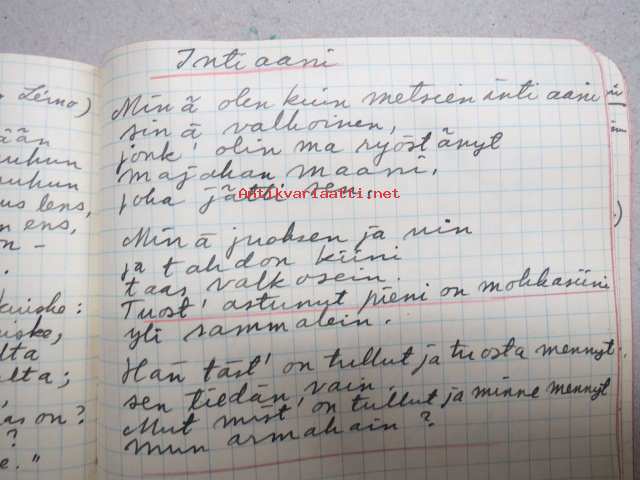 Lérno)
ään
uuhun
uuhun
us lens,
n ens,
on -
kuiske:
uiske,
alta
elta;
as on?
?
e."
Intiaani
Minä olen kuin metsien intiaani
sinä valkoinen,
jonk' olin ma ryöstänyt
majahan maani,
joka jätti sen.
Minä juoksen ja niin
ja tahdon kiini
taas valkosein.
Tuost' astunut pieni on mokkasiini
yli sammalein.
Hän täst' on tullut ja tuosta mennyt.
sen tiedän, vain,
Mut mist' on tullut ja minne mennyt
mun armahain?
Antikvariaatti.net